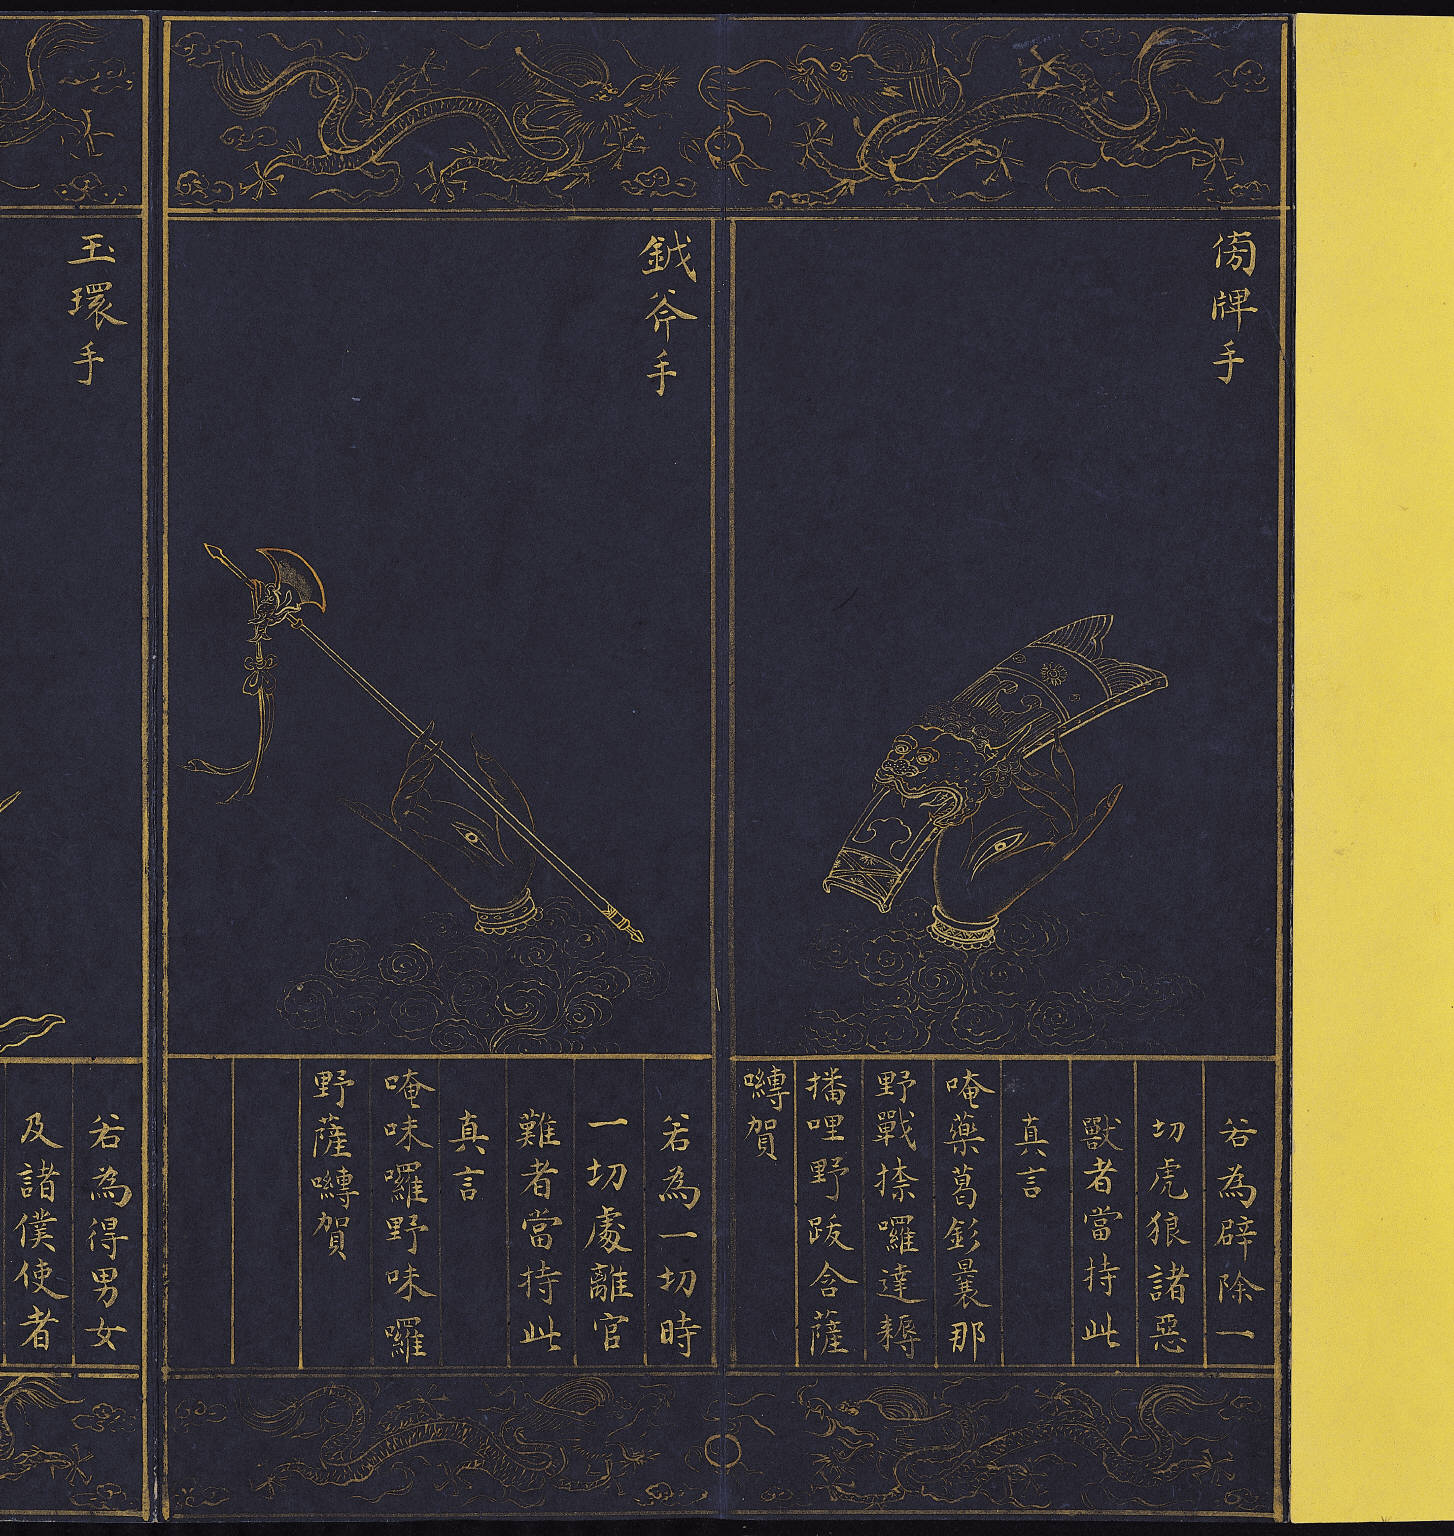 傍牌手
若為辟除一
切虎狼諸惡
獸者當持此
真言
唵藥葛釤曩那
野戰捺囉達耨
播哩野跋含薩
嚩賀
鉞斧手
若為一切時
一切處離官
難者當持此
真言
唵味囉野味囉
野薩嚩賀
玉環手
若為得男女
及諸僕使者